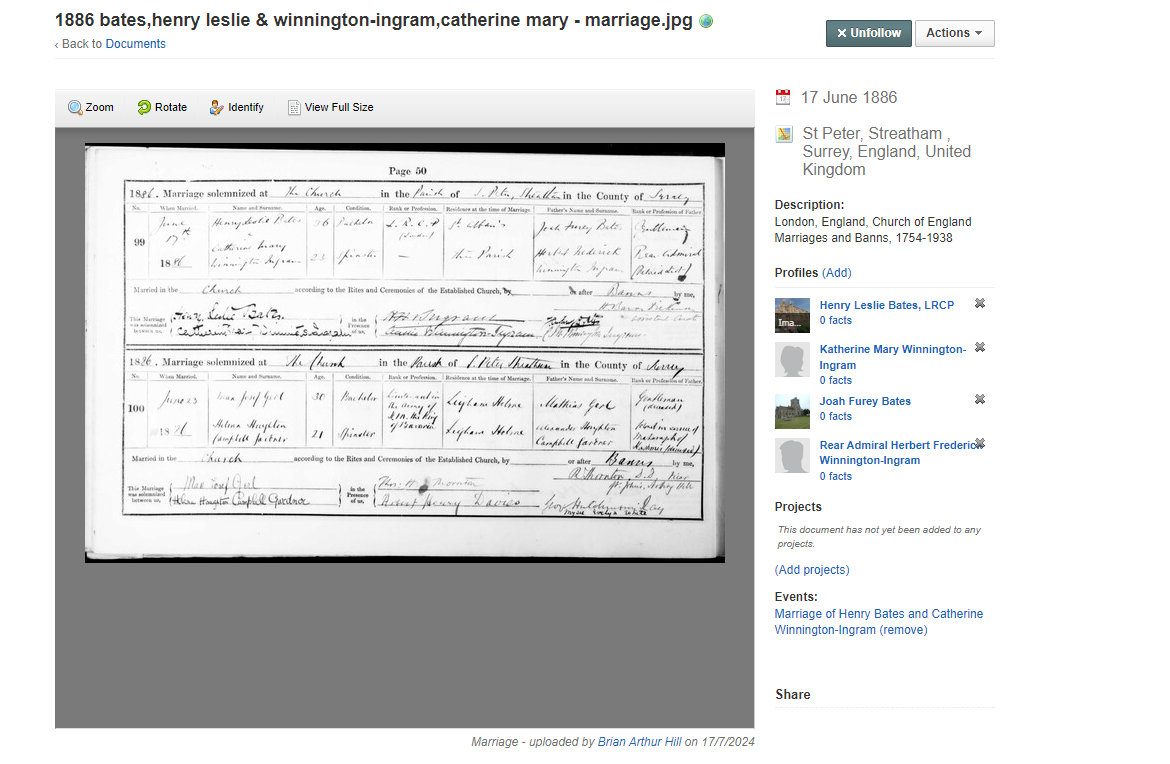 1886 bates,henry leslie & winnington-ingram,catherine mary - marriage.jpg
‹ Back to Documents
✕ Unfollow
Actions
Zoom
Rotate
Identify
View Full Size
Page 50
1886. Marriage solemnized at The Church in the Parish of S. Peter, Streatham in the County of Surrey
No. When Married. Name and Surname. Age. Condition. Rank or Profession. Residence at the time of Marriage. Father's Name and Surname. Rank or Profession of Father.
99
June
17th
1886
Henry Leslie Bates
Catherine Mary
Winnington Ingram
Bachelor
Spinster
L. R. C. P
—
St Alban's
this Parish
Joah Furey Bates
Herbert Frederick
Winnington Ingram
Gentleman
Rear Admiral
(Retired List)
Married in the Church according to the Rites and Ceremonies of the Established Church, by or after Banns by me,
This Marriage was solemnized between us,
Henry Leslie Bates
in the Presence of us,
Winnington-Ingram
Marriage solemnized at The Church in the Parish of S. Peter Streatham in the County of Surrey
No. When Married. Name and Surname. Age. Condition. Rank or Profession. Residence at the time of Marriage. Father's Name and Surname. Rank or Profession of Father.
100
June 23
Helena Houghton
Campbell Gardner
30
21
Bachelor
Spinster
Lieutenant in
the Army of
H.M. the King
of Bavaria
Leigham Holme
Leigham Holme
Mathias Gerl
Alexander Houghton
Campbell Gardner
Gentleman
(deceased)
Married in the Church according to the Rites and Ceremonies of the Established Church, by or after Banns by me,
R. Thornton, D.D., Vicar
St. John's, Notting Hill
This Marriage was solemnized between us,
Max Josef Gerl
Helena Houghton Campbell Gardner
in the Presence of us,
Thornton
Henry Davies
Marriage - uploaded by Brian Arthur Hill on 17/7/2024
17 June 1886
St Peter, Streatham ,
Surrey, England, United
Kingdom
Description:
London, England, Church of England
Marriages and Banns, 1754-1938
Profiles (Add)
Ima...
Henry Leslie Bates, LRCP
0 facts
Katherine Mary Winnington-
Ingram
0 facts
Joah Furey Bates
0 facts
Rear Admiral Herbert Frederic
Winnington-Ingram
0 facts
Projects
This document has not yet been added to any
projects.
(Add projects)
Events:
Marriage of Henry Bates and Catherine
Winnington-Ingram (remove)
Share